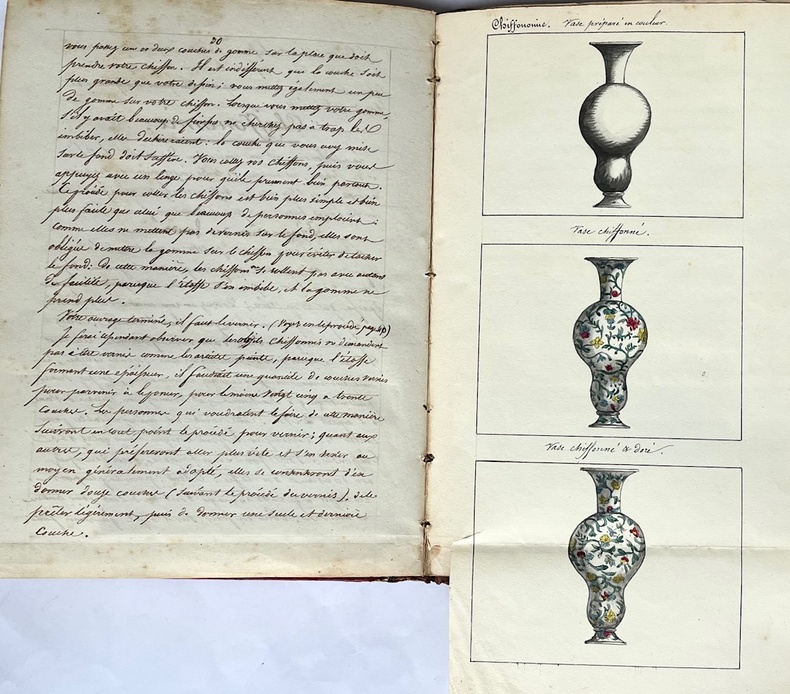 20
vous passez un ou deux couches de gomme sur la place que doit
prendre votre chiffon. Il est indifférent que la couche soit
plus grande que votre dessin ; vous mettez également un peu
de gomme sur votre chiffon. Lorsque vous mettez votre gomme,
s'il y avait beaucoup de ne cherchez pas a trop les
imbiber, elles : la couche que vous avez mise
sur le fond doit suffire. Vous collez vos chiffons, puis vous
appuyez avec un linge pour qu'ils prennent bien partout.
Ce procédé pour coller les chiffons est bien plus simple et bien
plus facile que celui que beaucoup de personnes emploient :
comme elles ne mettent pas de vernis sur le fond, elles sont
obligées de mettre la gomme sur le chiffon pour éviter de tacher
le fond : De cette manière, les chiffons ne se collent pas avec autant
de facilité, parceque l'étoffe s'en imbibe, et la gomme ne
prend plus.
Votre ouvrage terminé, il faut le vernir. (Voyez en le procédé page 40)
Je ferai cependant observer que les objets Chiffonnés ne demandent
pas à être vernis comme les articles peints, parceque l'étoffe
formant une épaisseur, il faudrait une quantité de couches vernis
pour parvenir à le poncer, pour le moins vingt cinq a trente
Couches. Les personnes qui voudraient le faire de cette manière
suivront en tout point le procédé pour vernir ; quant aux
autres, qui préfèreront aller plus vite et s'en tenir au
moyen généralement adopté, elles se contenteront d'en
donner douze couches (suivant le procédé du vernis), de le
légèrement, puis de donner une seule et dernière
Couche.
Chiffonomie. Vase préparé en couleur.
Vase chiffonné.
Vase chiffonné & doré.